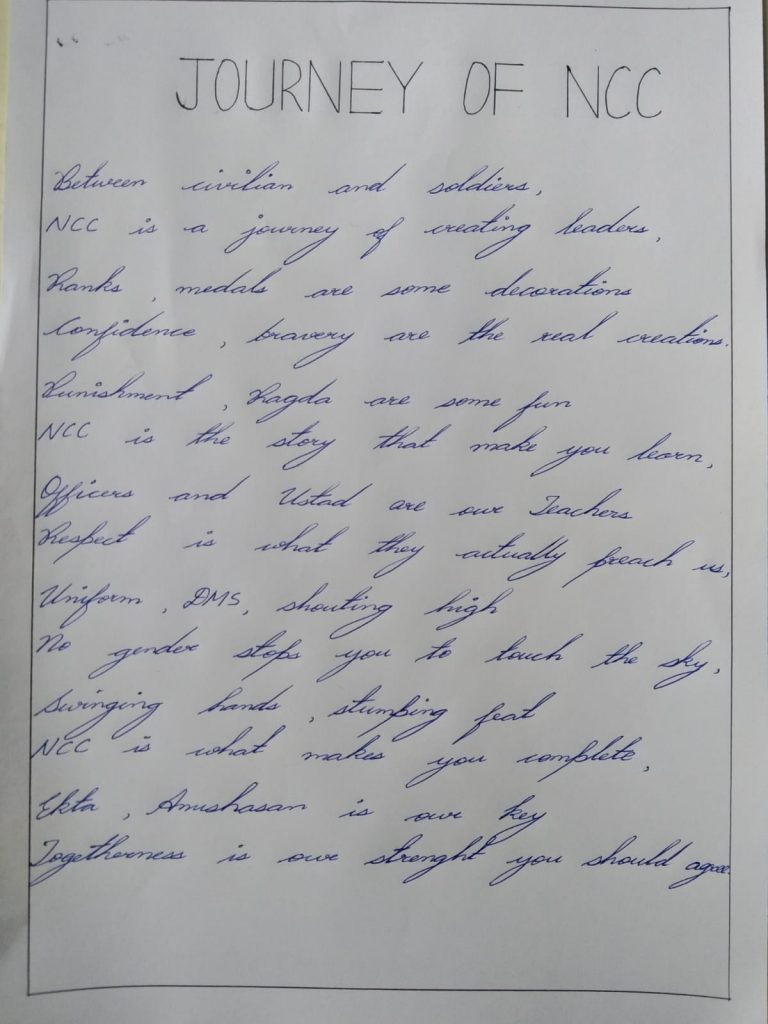 JOURNEY OF NCC
Between civilian and soldiers,
NCC is a journey of creating leaders,
Ranks, medals are some decorations
Confidence, bravery are the real creations.
Punishment, Ragda are some fun
NCC is the story that make you learn,
Officers and Ustad are our Teachers
Respect is what they actually preach us,
Uniform, DMS, shouting high
No gender stops you to touch the sky,
Swinging hands, stumping feat
NCC is what makes you complete,
Ekta, Anushasan is our key
Togetherness is our strenght you should agree.